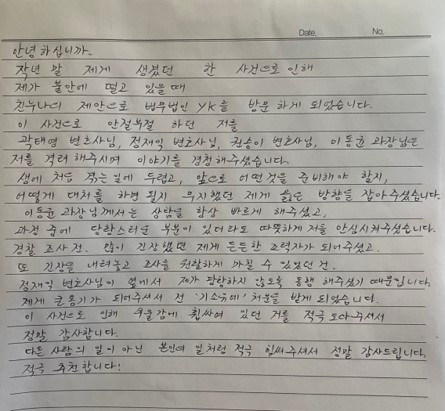 Date. No.
안녕하십니까.
작년 말 제게 생겼던 한 사건으로 인해
제가 불안에 떨고 있을 때
친누나의 제안으로 법무법인 YK을 방문하게 되었습니다.
이 사건으로 안절부절 하던 저를
곽태영 변호사님, 정재익 변호사님, 권승이 변호사님, 이동훈 과장님은
저를 격려해주시며 이야기를 경청해주셨습니다.
생에 처음 겪는일에 두렵고, 앞으로 어떤것을 준비해야 할지,
어떻게 대처를 하면 될지 무지했던 제게 옳은 방향을 잡아주셨습니다.
이동훈 과장님께서는 상담을 항상 빠르게 해주셨고,
과정 중에 당황스러운 부분이 있더라도 따뜻하게 저를 안심시켜주셨습니다.
경찰 조사 전. 많이 긴장했던 제게 든든한 조력자가 되어주셨고.
또 긴장을 내려놓고 조사를 원활하게 마칠 수 있었던 건.
정재익 변호사님이 옆에서 제가 당황하지 않도록 동행 해주셨기 때문입니다.
제게 큰 용기가 되어주셔서 전 '기소유예' 처분을 받게 되었습니다.
이 사건으로 인해 우울감에 휩싸여 있던 저를 적극 도와주셔서
정말 감사합니다.
다른 사람의 일이 아닌 본인의 일처럼 적극 힘써주셔서 정말 감사드립니다.
적극 추천합니다!